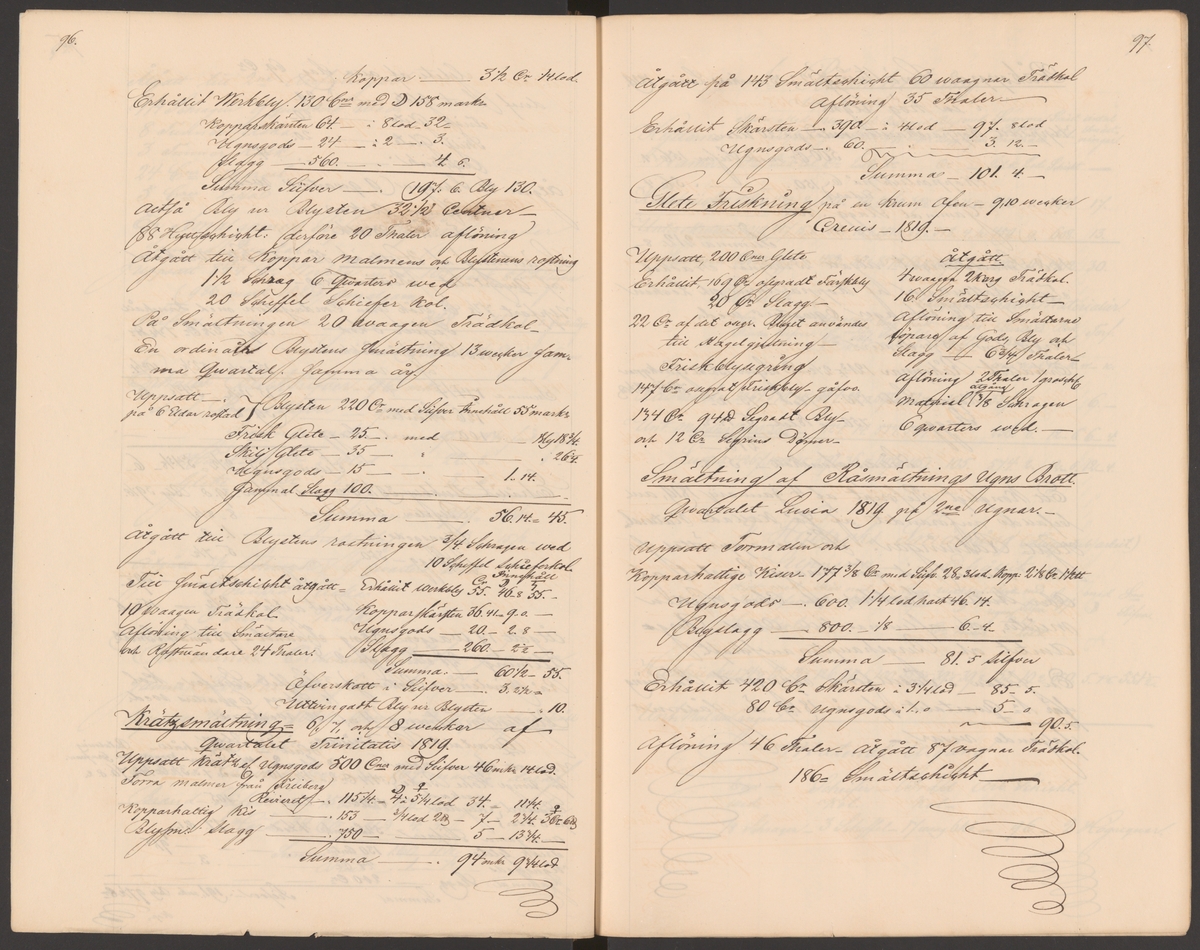 96.
Koppar — 3 1/2 Cr 14 lod
Erhållit Werkbly 130 Cnr med D 158 marker
Kopparskärsten 64. — : 8 lod 32
Ugnsgods — 24 — : 2 — 3.
Slagg — 560. — . — 4. 6.
Summa Silfver — . 197. 6. Bly 130.
altså Bly ur Blysten 32 1/2 Centner —
88 Hyttschicht: derföre 20 Thaler aflöning
Åtgått till Koppar malmens och Blystenens rostning
1 1/2 Schrag 6 Quarters wed
20 Scheffel Schiefer kol.
På Smältningen 20 waagen Trädkol —
En ordinär Blystens smältning 13 weeker sam-
ma Qwartal. samma år.
Uppsatt
på 6 Eldar rostad } Blysten 220 Cr med Silfver Innehåll 55 marker
Frisk Glete — 25 —. med — Bly 18 3/4.
Skilj Glete — 35 — . 26 1/4.
Ugnsgods — 15 — . 1. 14.
Gammal Slagg 100.
Summa — . 56. 14. = 45.
Åtgått till Blystens rostningen 3/4 Schragen wed
10 Scheffel Schieferkol.
Till smältschicht åtgått = Erhållit werkbly 55. 46. 8 55. —
10 waagen Trädkol. Kopparskärsten 36. 9. 0. —
Aflöning till Smältare Ugnsgods — 20. — 2. 8 —
och Rostwändare 24 Thaler. Slagg — 260. —
Summa. — 60 1/2 — 55.
Öfverskott i Silfver — . 3.
Uttvingadt Bly ur Blysten — . 10.
Krätzsmältning = 6, 7, och 8 weeker af
Qwartalet Trinitatis 1819.
Uppsatt Krätz ugnsgods 500 Cnr med Silfver 46 mkr 14 lod.
Torra malmer från Freiberg
Revieret . 115 1/4. 4 = 5 1/4 lod 34. — 11 1/4.
Kopparhaltig Kis — . 153 — 3/4 lod — 7 — 2 1/4.
Blysm: Slagg — 750 — 5 — 13 1/4.
Summa — . 94 mkr 9 1/4 lod.
97.
Åtgått på 143 Smältschight 60 waagnar Trädkol
Aflöning 35 Thaler. —
Erhållit Skärsten — 390 — : 4 lod — 97. 8 lod
Ugnsgods — 60. — . 3. 12. —
Summa — 101. 4. —
Glete Friskning på en krum Ofen — 9, 10 weeker
Crucis — 1819. —
Uppsatt, 200 Cnr Glete
Erhållit 169 Cr osegradt Färskbly
20 Cr Slagg. —
22 Cr af det osegr. Blyet användes
till Hagelgjutning —
Friskblysegring
147 Cr osegrat Friskbly gåfvo.
134 Cr 94 Segradt Bly —
och 12 Cr Segrins Dörner —
åtgått
4 waagn 2 korg Trädkol.
16 Smältschight —
Aflöning till Smältarne
löpare af Gods, Bly och
Slagg — 6 3/4 Thaler —
Aflöning 2 Thaler 1 grosch 6
åtgång
Material 1/8 Schragen
6 qwarters wed. —
Smältning af Råsmältnings Ugns Brott
Qwartalet Lucia 1819 på 2ne Ugnar. —
Uppsatt Torrmalm och
Kopparhaltige Kiser — 177 3/8 Cr med Silfv. 28, 3 lod. Kopp: 2 1/8 Cr
Ugnsgods — . 600. 1 1/4 lod halt 46. 14.
Blyslagg — 800. — 1/8 — 6. — 4. —
Summa — 81. 5 Silfver
Erhållit 420 Cr Skärsten : 3 1/4 lod — 85. 5.
80 Cr Ugnsgods : 1. 0 — 5 — 0
90. 5.
Aflöning 46 Thaler — åtgått 87 vagnar Trädkol.
186 = Smältschicht —